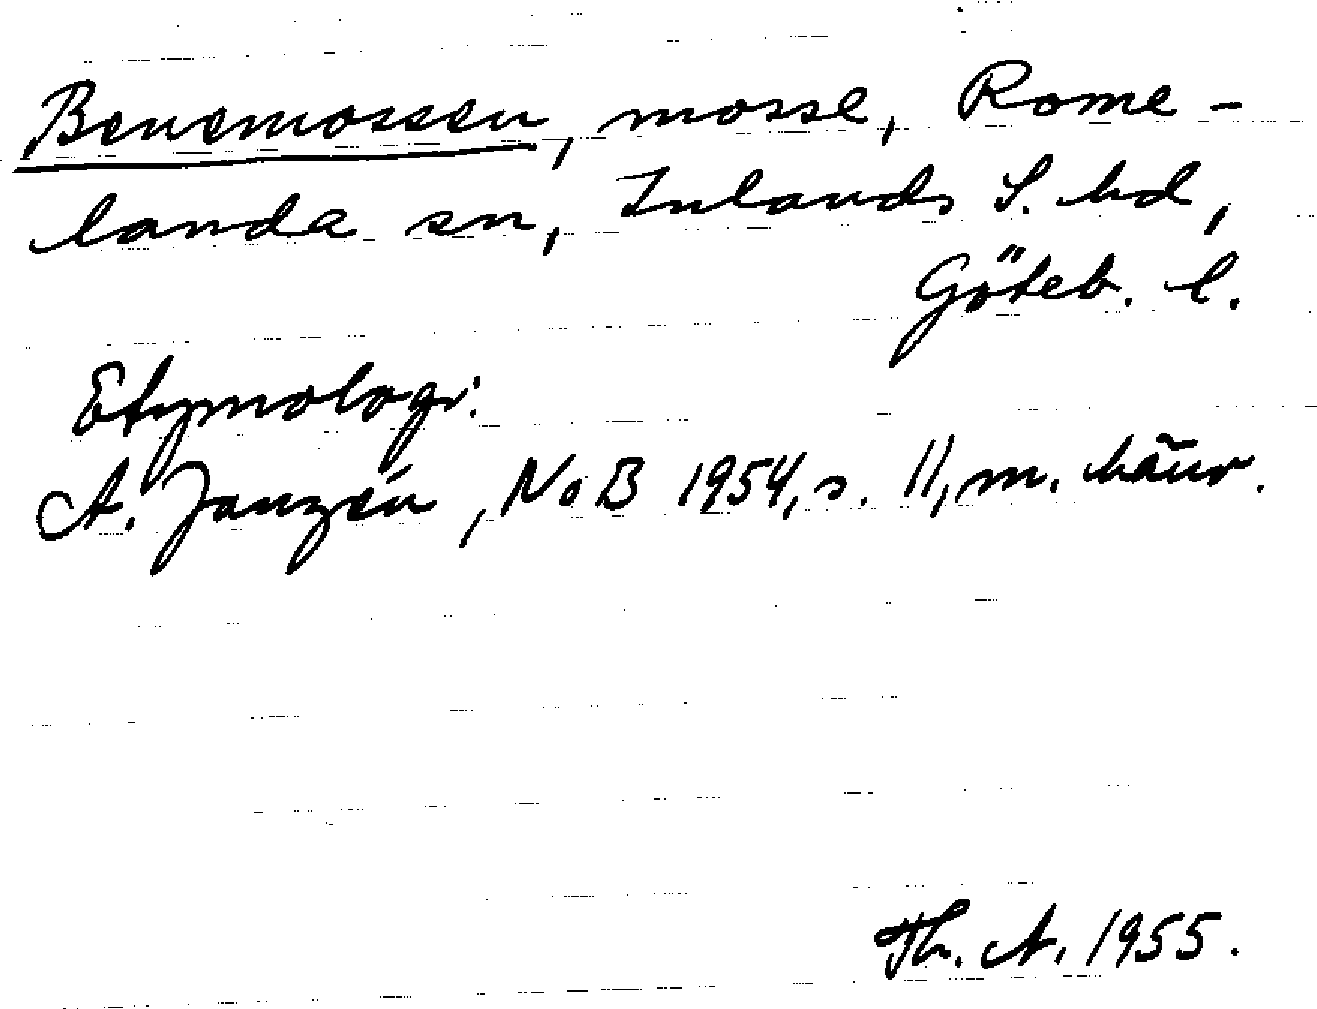 Benemossen, mosse, Rome-
landa sn, Inlands S. hd,
Göteb. l.
Etymologi:
A. Janzén, NoB 1954, s. 11, m. hänv.
Th. A. 1955.